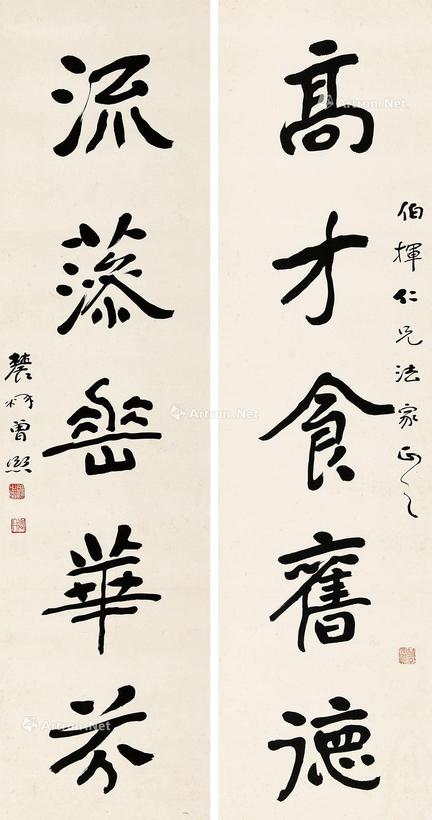 伯揮仁兄法家正之
高才食舊德
流藻垂華芬
農髯曾熙
Artron.Net
Artron.Net
Artron.Net